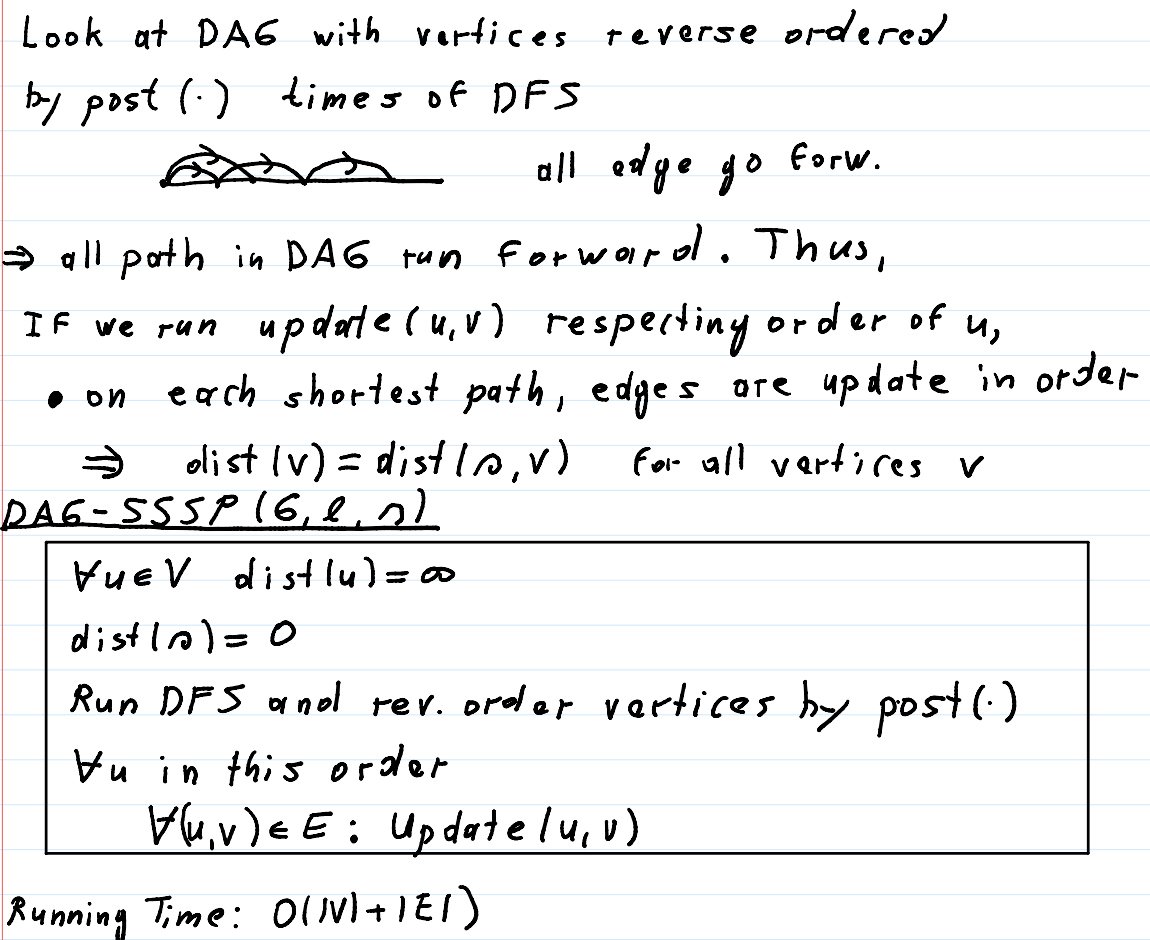 Look at DAG with vertices reverse ordered
by post(·) times of DFS
all edge go forw.
⇒ all path in DAG run forward. Thus,
If we run update(u,v) respecting order of u,
• on each shortest path, edges are update in order
⇒ dist(v) = dist(s,v) for all vertices v
DAG-SSSP(G, l, s)
∀u∈V dist(u) = ∞
dist(s) = 0
Run DFS and rev. order vertices by post(·)
∀u in this order
∀(u,v)∈E: Update(u,v)
Running Time: O(|V|+|E|)